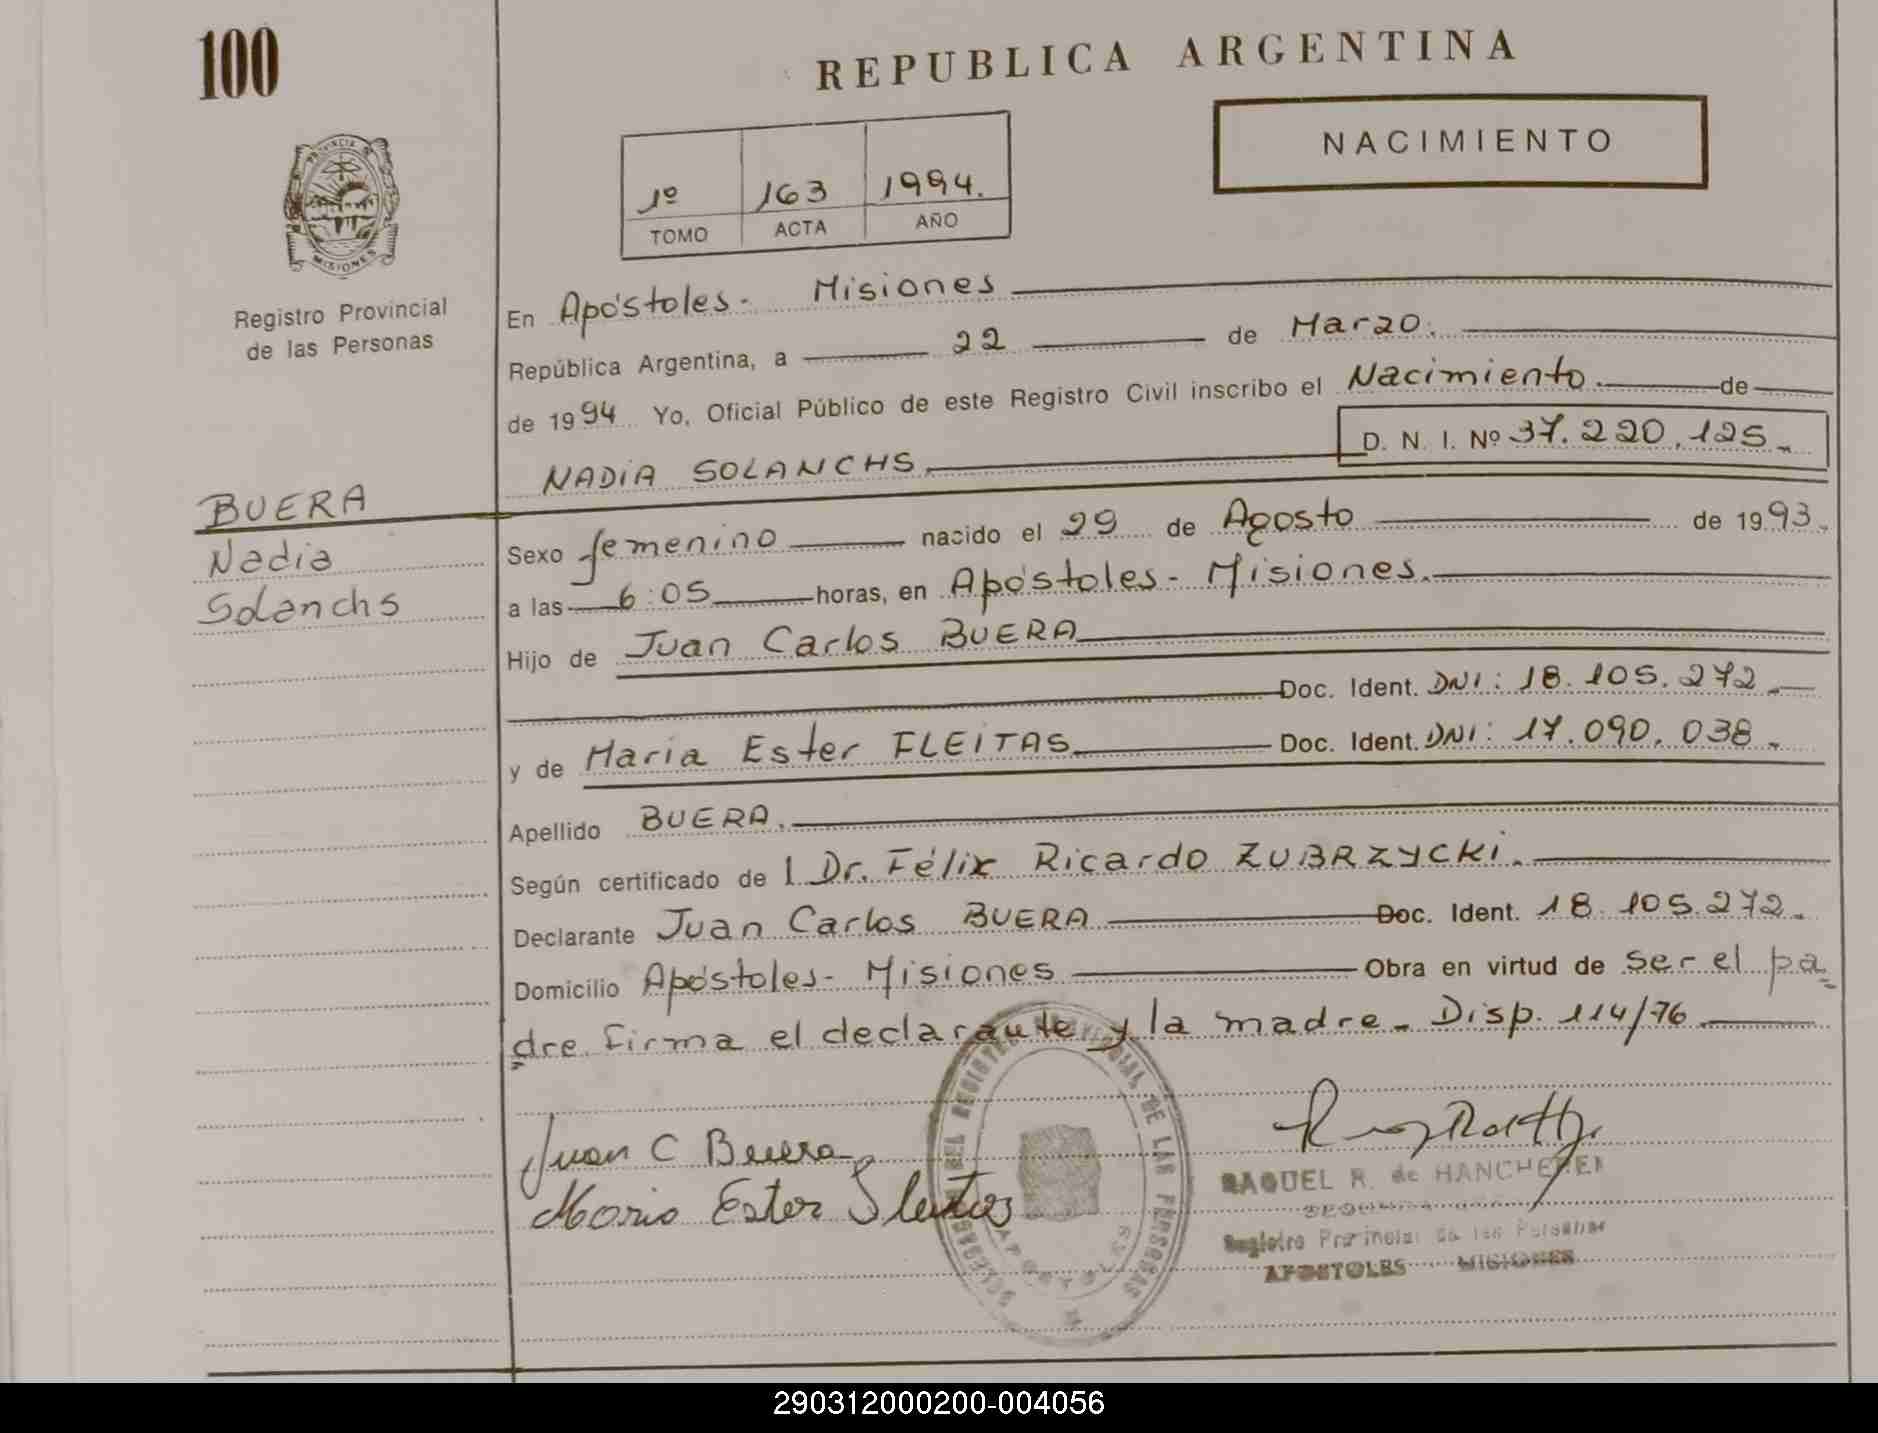 100
REPUBLICA ARGENTINA
NACIMIENTO
1º 163 1994.
TOMO ACTA AÑO
PROVINCIA DE
MISIONES
Registro Provincial
de las Personas
En Apóstoles - Misiones
República Argentina, a 22 de Marzo.
de 1994 Yo, Oficial Público de este Registro Civil inscribo el Nacimiento de
D. N. I. Nº 37.220.125.-
NADIA SOLANCHS.
BUERA
Nadia
Solanchs
Sexo femenino nacido el 29 de Agosto de 1993.
a las 6:05 horas, en Apóstoles - Misiones.
Hijo de Juan Carlos BUERA
Doc. Ident. DNI: 18.105.272.-
y de Maria Ester FLEITAS. Doc. Ident. DNI: 17.090.038.-
Apellido BUERA.
Según certificado de l Dr. Félix Ricardo ZUBRZYCKI.
Declarante Juan Carlos BUERA Doc. Ident. 18.105.272.-
Domicilio Apóstoles - Misiones Obra en virtud de ser el pa=
dre. Firma el declarante y la madre. Disp. 114/76
Juan C Buera
Maria Ester Fleitas
DEL REGISTRO PROVINCIAL DE LAS PERSONAS
APOSTOLES
RAQUEL R. de
Registro Provincial de las Personas
APOSTOLES MISIONES
290312000200-004056